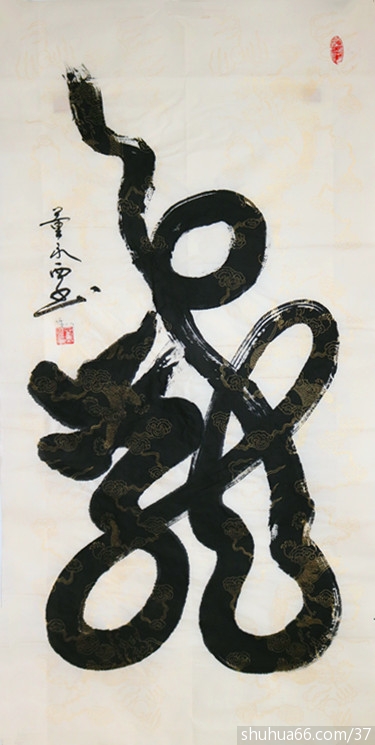 龍
董永西书
shuhua66.com/37